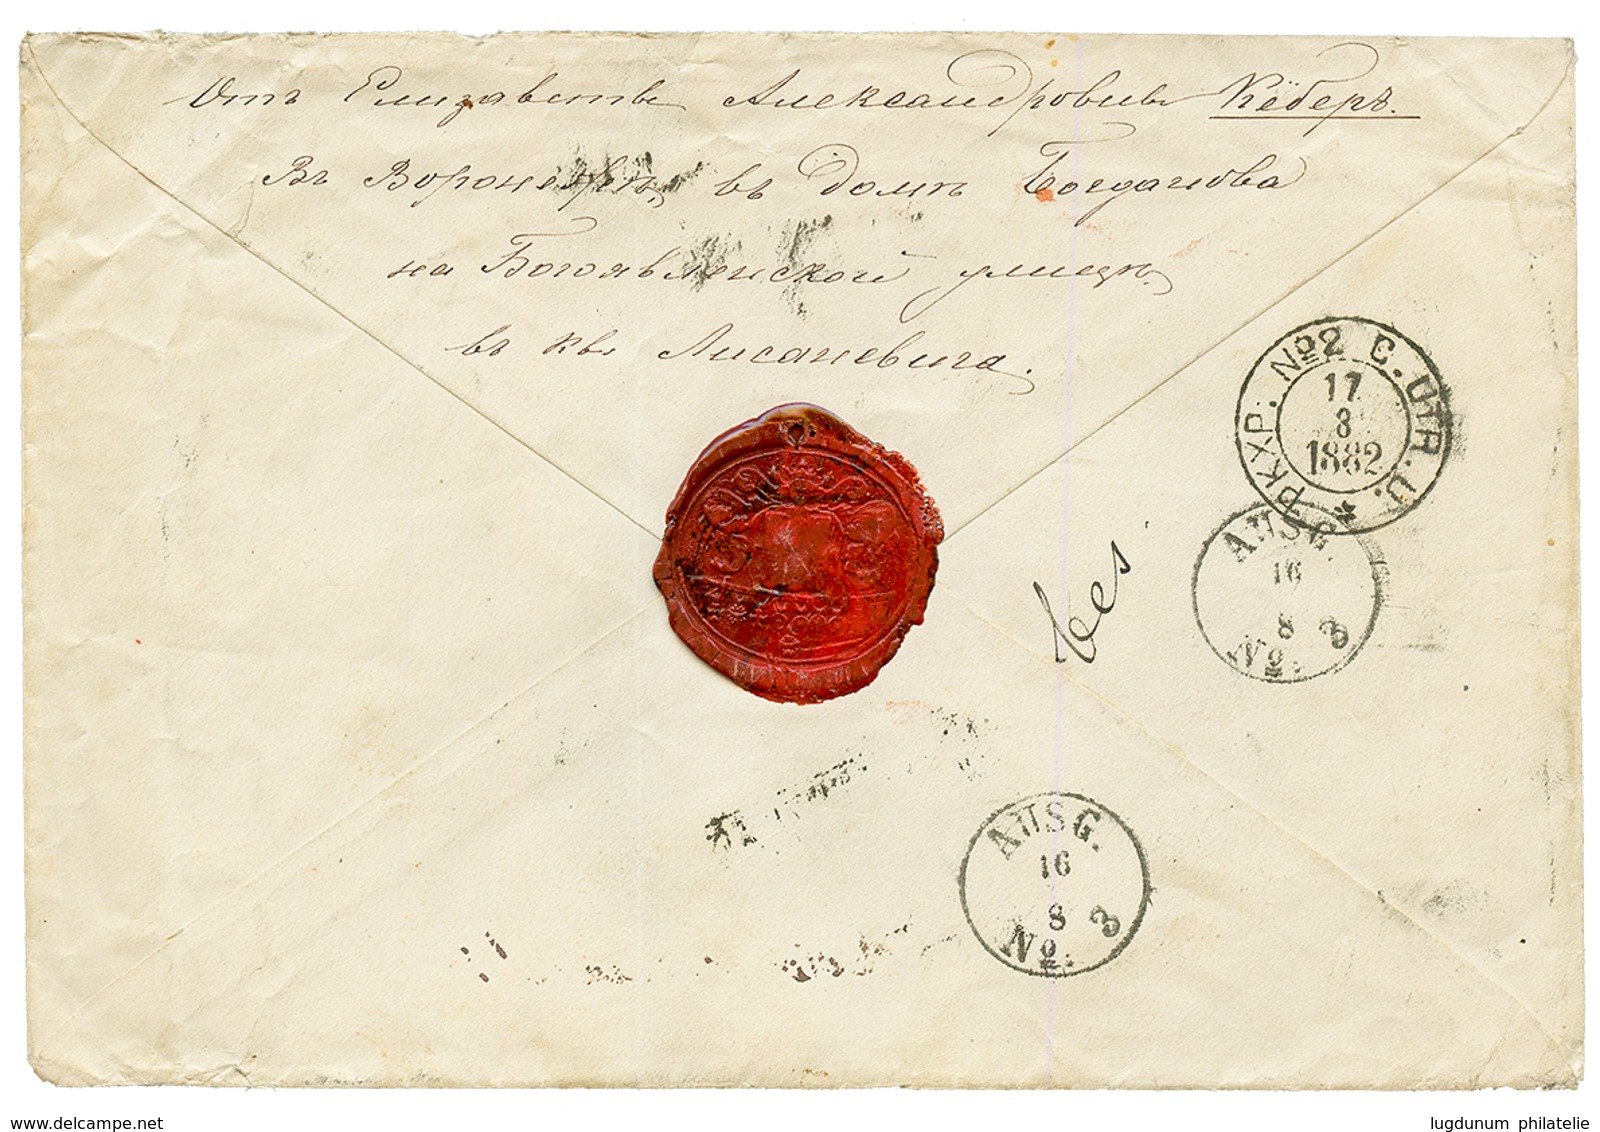 Отъ Елизаветы Александровны Кёберъ.
Въ Воронежѣ, въ домѣ Богданова
на Богоявленской улицѣ.
въ кв. Лисаневича.
РКХР. №2 С. УТR. U. *
17
8
1882
AUSG.
16
8
No. 3
AUSG.
16
8
No. 3
delcampe.net
lugdunum philatelie